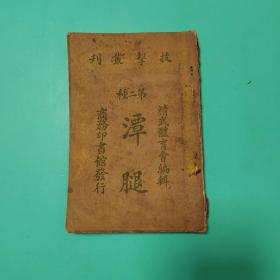 技擊叢刊
第二種
精武體育會編輯
潭腿
商務印書館發行